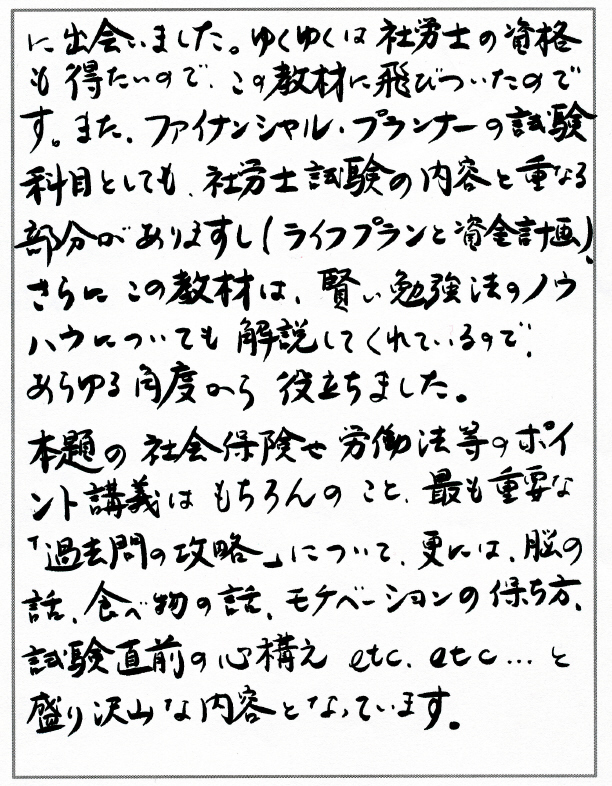 に出会いました。ゆくゆくは社労士の資格
も得たいので、この教材に飛びついたので
す。また、ファイナンシャル・プランナーの試験
科目としても、社労士試験の内容と重なる
部分がありますし(ライフプランと資金計画)、
さらにこの教材は、賢い勉強法のノウ
ハウについても解説してくれているので、
あらゆる角度から役立ちました。
本題の社会保険や労働法等のポイ
ント講義はもちろんのこと、最も重要な
「過去問の攻略」について、更には、脳の
話、食べ物の話、モチベーションの保ち方、
試験直前の心構え etc. etc...と
盛り沢山な内容となっています。